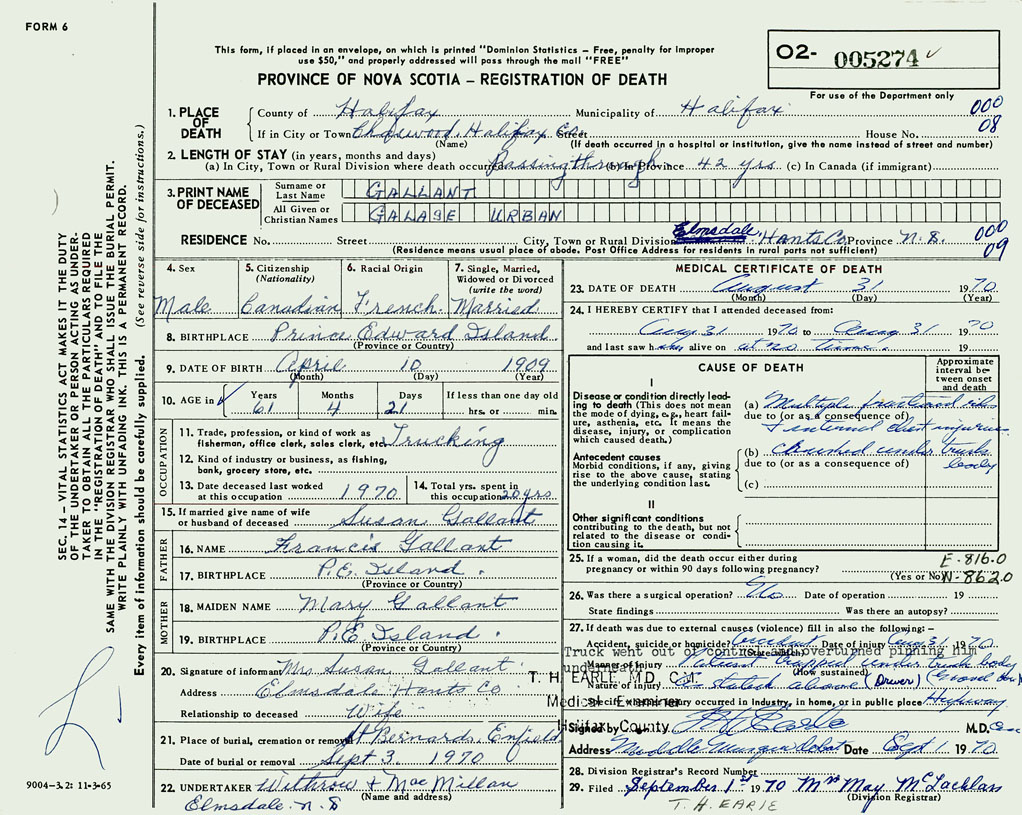 FORM 6
This form, if placed in an envelope, on which is printed "Dominion Statistics – Free, penalty for improper
use $50," and properly addressed will pass through the mail "FREE"
02- 005274
For use of the Department only
PROVINCE OF NOVA SCOTIA – REGISTRATION OF DEATH
1. PLACE OF DEATH
County of Halifax Municipality of Halifax 000
If in City or Town Halifax Co. Street House No. 08
(Name) (If death occurred in a hospital or institution, give the name instead of street and number)
2. LENGTH OF STAY (in years, months and days)
(a) In City, Town or Rural Division where death occurred Passing through (b) In Province 42 yrs. (c) In Canada (if immigrant)
3. PRINT NAME OF DECEASED
Surname or Last Name GALLANT
All Given or Christian Names GALASE URBAN
RESIDENCE No. Street City, Town or Rural Division Elmsdale, Hants Co Province N.S. 000
(Residence means usual place of abode. Post Office Address for residents in rural parts not sufficient) 09
4. Sex
Male
5. Citizenship
(Nationality)
Canadian
6. Racial Origin
French
7. Single, Married,
Widowed or Divorced
(write the word)
Married
8. BIRTHPLACE Prince Edward Island
(Province or Country)
9. DATE OF BIRTH April 10 1909
(Month) (Day) (Year)
10. AGE in Years Months Days If less than one day old
61 4 21 hrs. or min.
OCCUPATION
11. Trade, profession, or kind of work as
fisherman, office clerk, sales clerk, etc. Trucking
12. Kind of industry or business, as fishing,
bank, grocery store, etc.
13. Date deceased last worked
at this occupation 1970
14. Total yrs. spent in
this occupation 20 yrs
15. If married give name of wife
or husband of deceased Susan Gallant
FATHER
16. NAME Francis Gallant
17. BIRTHPLACE P.E. Island.
(Province or Country)
MOTHER
18. MAIDEN NAME Mary Gallant
19. BIRTHPLACE P.E. Island.
(Province or Country)
20. Signature of informant Mrs Susan Gallant
Address Elmsdale Hants Co
Relationship to deceased Wife
21. Place of burial, cremation or removal St Bernards, Enfield
Date of burial or removal Sept 3. 1970
22. UNDERTAKER Withrow + MacMillan
(Name and address)
Elmsdale. N.S
MEDICAL CERTIFICATE OF DEATH
23. DATE OF DEATH August 31 1970
(Month) (Day) (Year)
24. I HEREBY CERTIFY that I attended deceased from:
Aug 31 1970 to Aug 31 1970
and last saw h alive on at no time. 19
CAUSE OF DEATH
Approximate
interval be-
tween onset
and death
I
Disease or condition directly lead-
ing to death (This does not mean
the mode of dying, e.g., heart fail-
ure, asthenia, etc. It means the
disease, injury, or complication
which caused death.)
(a) Multiple fractured ribs
due to (or as a consequence of)
+ internal chest injuries
Antecedent causes
Morbid conditions, if any, giving
rise to the above cause, stating
the underlying condition last.
(b) crushed under truck
due to (or as a consequence of) body
(c)
II
Other significant conditions
contributing to the death, but not
related to the disease or condi-
tion causing it.
25. If a woman, did the death occur either during
pregnancy or within 90 days following pregnancy?
(Yes or No)
E-816.0
N-862.0
26. Was there a surgical operation? No Date of operation 19
State findings Was there an autopsy?
27. If death was due to external causes (violence) fill in also the following:–
Accident, suicide or homicide? Accident Date of injury Aug 31 1970
Truck went out of control and overturned pinning him
underneath
Manner of injury Patient trapped under truck body
(How sustained)
Nature of injury As stated above (Driver)
Specify whether injury occurred in industry, in home, or in public place Highway
T. H. EARLE, M.D., C.M.
Medical Examiner
Halifax County
Signed by T H Earle M.D.
Address Date Sept 1 1970
28. Division Registrar's Record Number
29. Filed September 1st 1970 Mrs May McLachlan
(Division Registrar)
T. H. EARLE
SEC. 14 – VITAL STATISTICS ACT MAKES IT THE DUTY
OF THE UNDERTAKER OR PERSON ACTING AS UNDER-
TAKER TO OBTAIN ALL THE PARTICULARS REQUIRED
IN THE "REGISTRATION OF DEATH" AND TO FILE THE
SAME WITH THE DIVISION REGISTRAR WHO SHALL ISSUE THE BURIAL PERMIT.
WRITE PLAINLY WITH UNFADING INK. THIS IS A PERMANENT RECORD.
Every item of information should be carefully supplied. (See reverse side for instructions.)
9004-3.2: 11-3-65